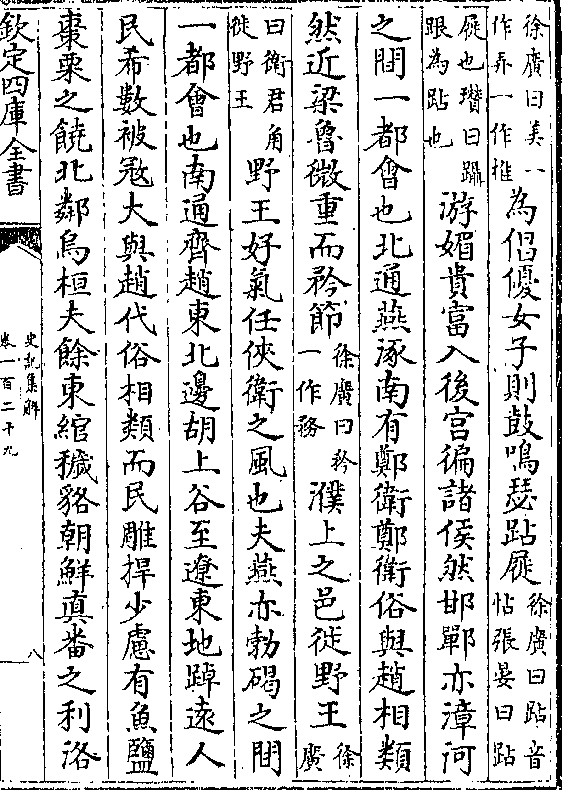 徐廣曰美一
作弄一作推
為倡優女子則鼓鳴瑟跕屣
徐廣曰跕音
帖張晏曰跕
屣也瓚曰躡
跟為跕也
游媚貴富入後宮徧諸侯然邯鄲亦漳河
之間一都㑹也北通燕涿南有鄭衛鄭衛俗與趙相類
然近梁魯微重而矜節
徐廣曰矜
一作務
濮上之邑徙野王
徐
廣
曰衛君角
徙野王
野王好氣任俠衛之風也夫燕亦勃碣之間
一都㑹也南通齊趙東北邊胡上谷至遼東地踔遠人
民希數被宼大與趙代俗相類而民雕捍少慮有魚鹽
棗栗之饒北鄰烏桓夫餘東綰穢貉朝鮮真番之利洛
欽定四庫全書
史記集解
卷一百二十九
八